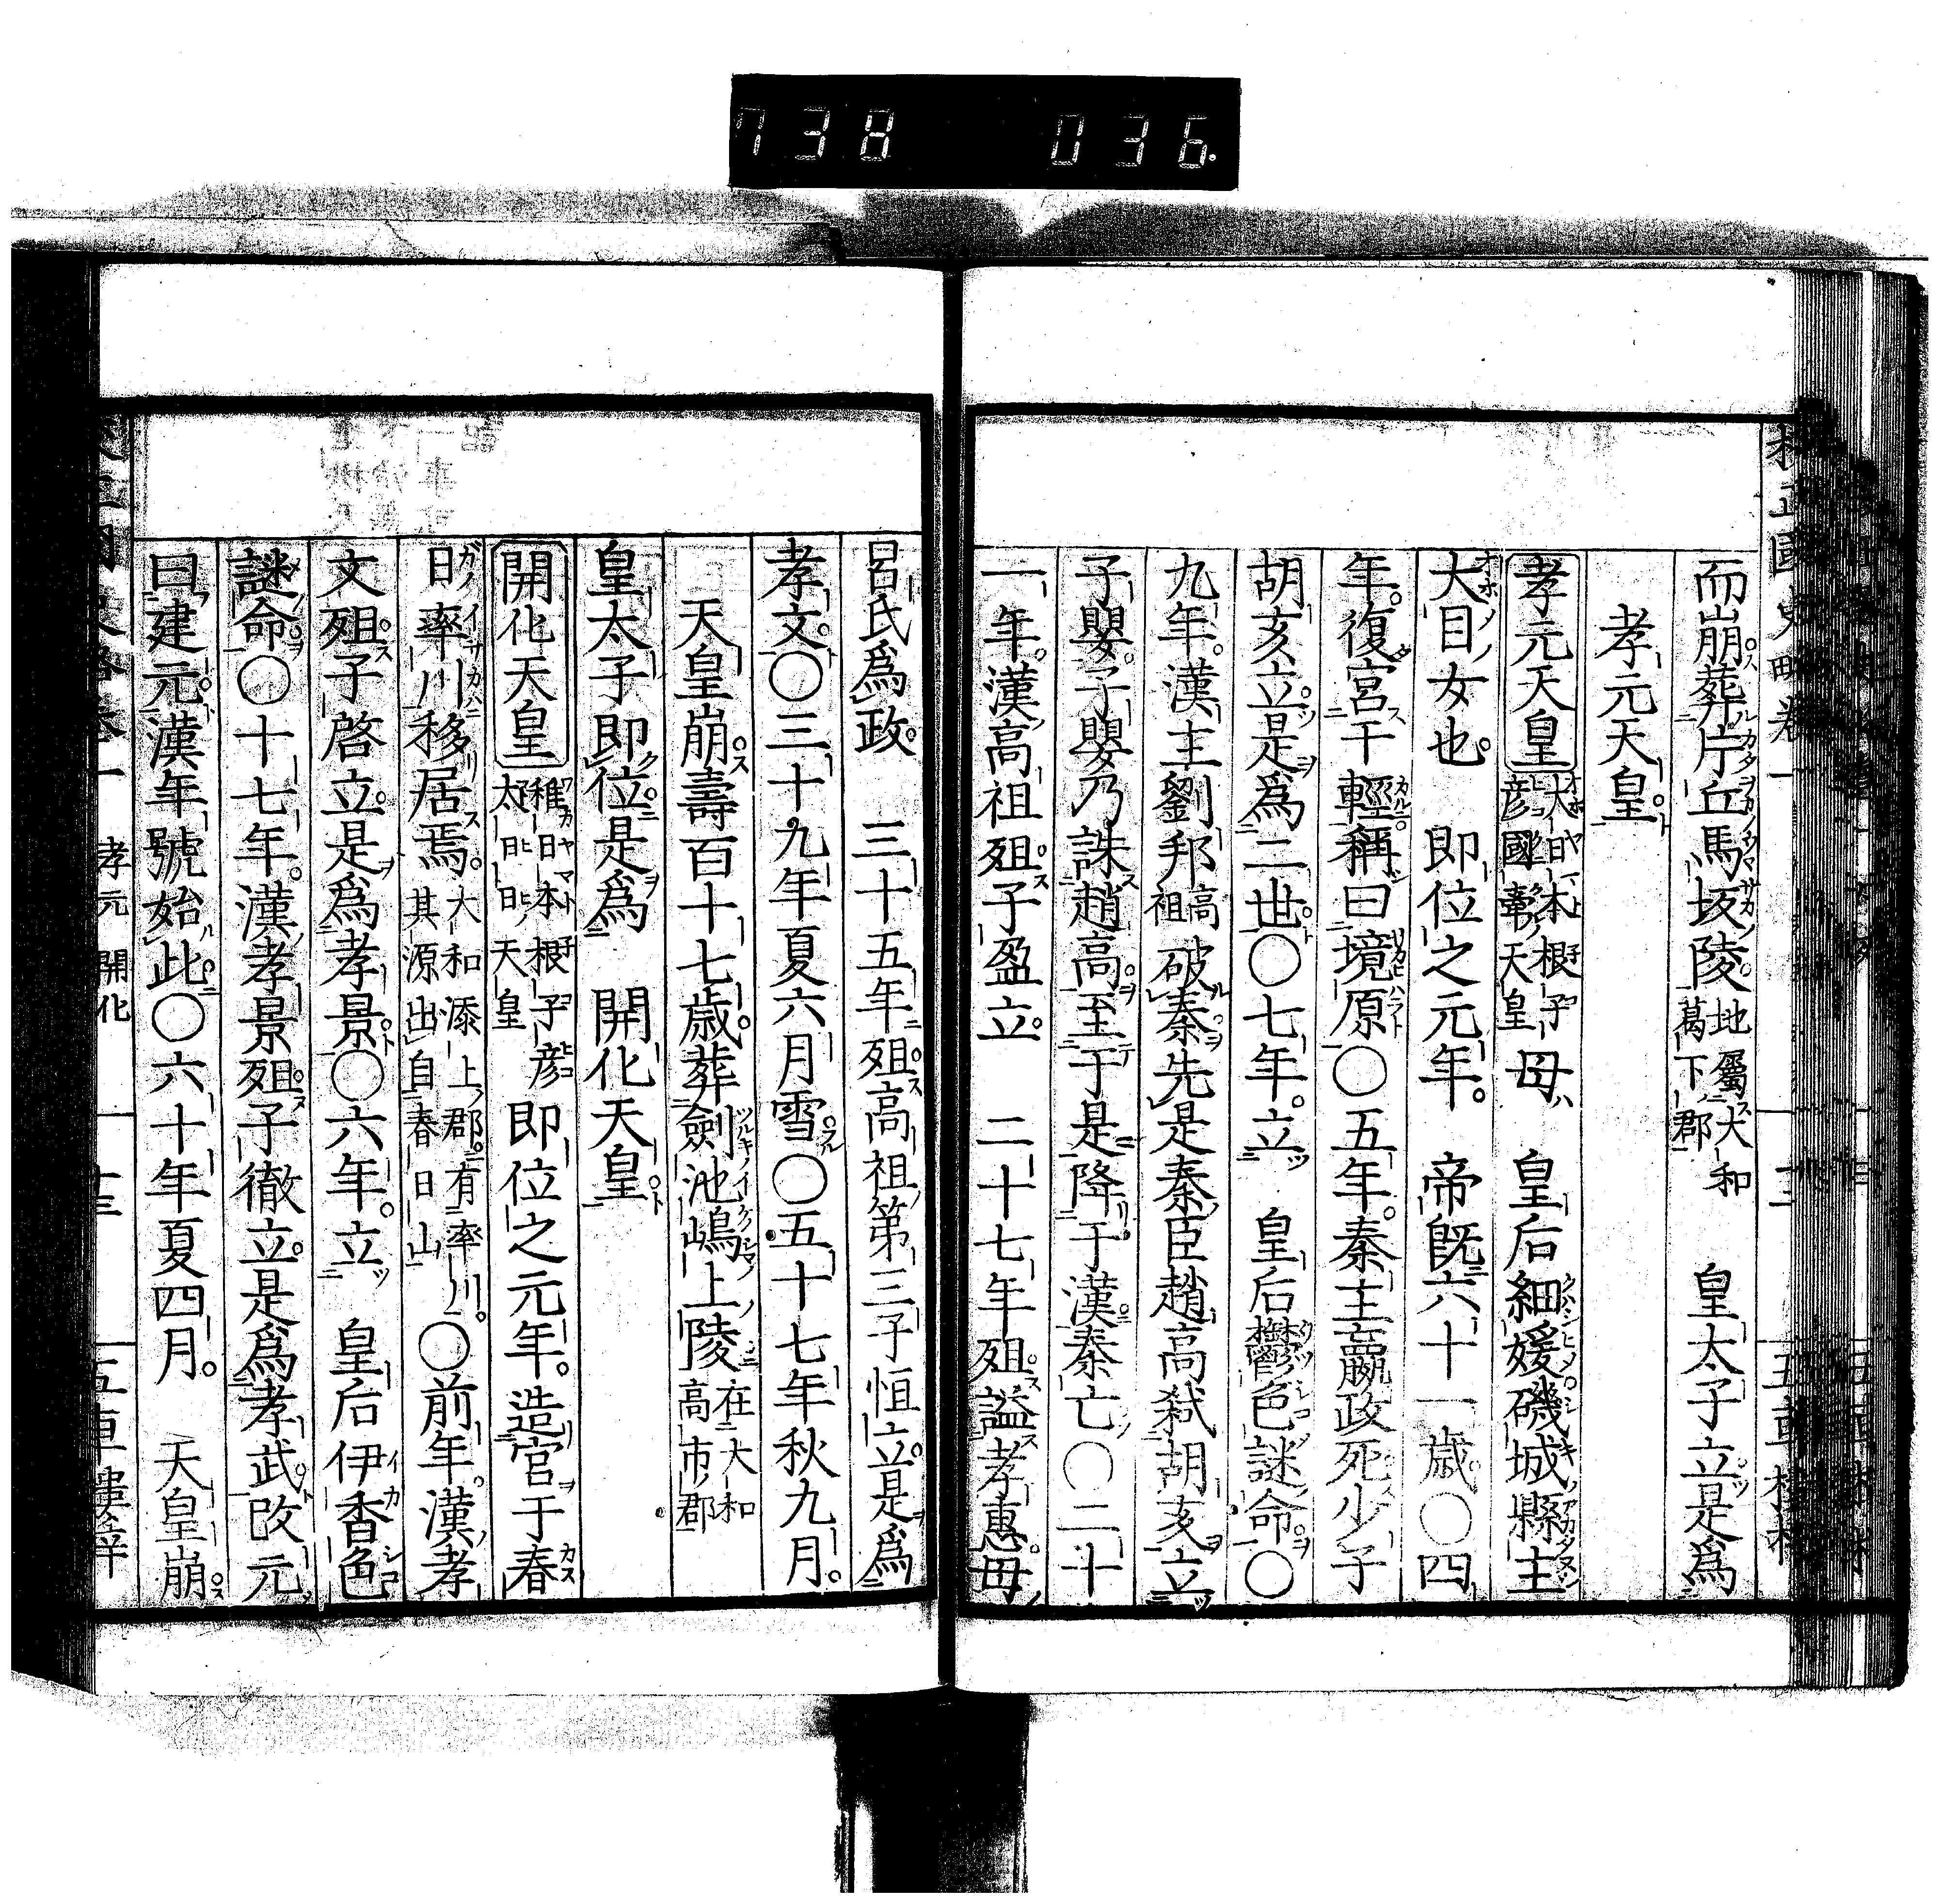 738 036.
而崩葬片丘馬坂陵地屬大和葛下郡 皇太子立是爲
孝元天皇
孝元天皇大日本根子彦國牽天皇母 皇后細媛磯城縣主
大目女也 即位之元年 帝既六十一歳〇四
年復宮于輕稱曰境原〇五年秦主嬴政死少子
胡亥立是爲二世〇七年立 皇后欝色謎命〇
九年漢主劉邦高祖破秦先是秦臣趙高弑胡亥立
子嬰子嬰乃誅趙高至于是降于漢秦亡〇二十
一年漢高祖殂子盈立 二十七年殂謚孝惠母
呂氏爲政 三十五年殂高祖第三子恒立是爲
孝文〇三十九年夏六月雪〇五十七年秋九月
天皇崩壽百十七歳葬劍池嶋上陵在大和高市郡
皇太子即位是爲 開化天皇
開化天皇稚日本根子彦太日日天皇 即位之元年造宮于春
日率川移居焉大和添上郡有率川其源出自春日山〇前年漢孝
文殂子啓立是爲孝景〇六年立 皇后伊香色
謎命〇十七年漢孝景殂子徹立是爲孝武改元
曰建元漢年號始此〇六十年夏四月 天皇崩
孝元 開化 十三